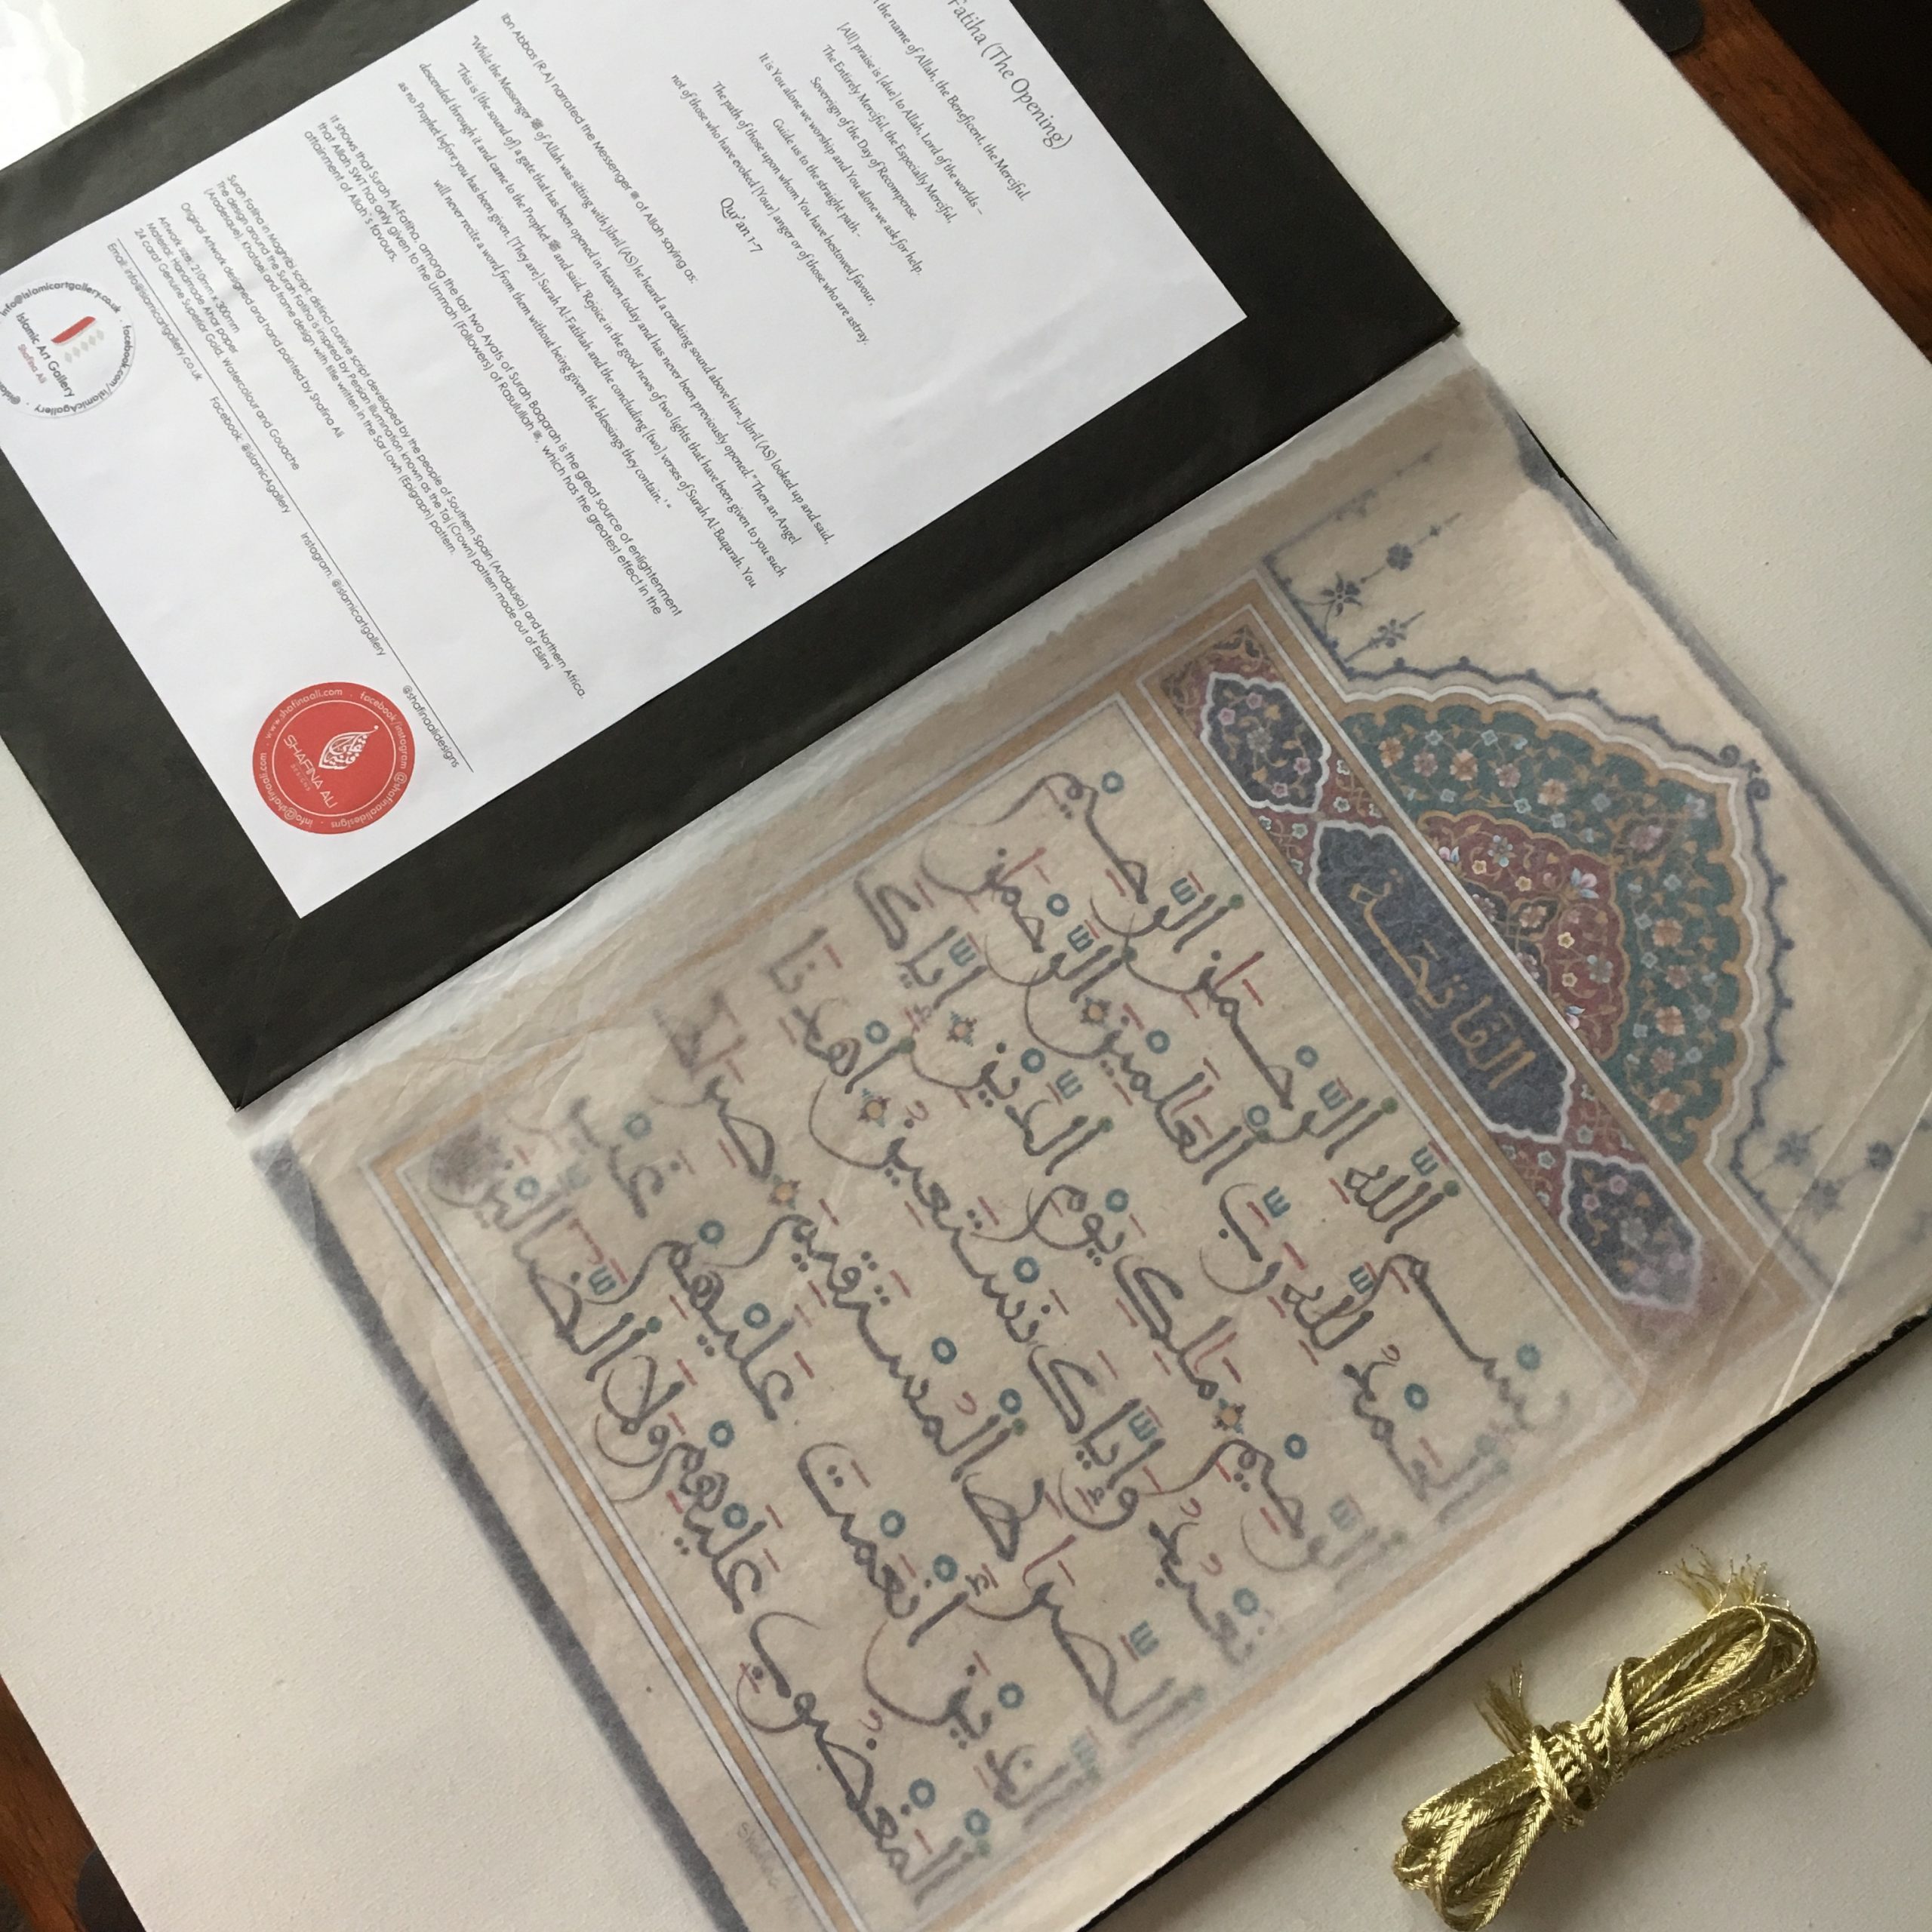 Fatiha (The Opening)
the name of Allah, the Beneficent, the Merciful.
[All] praise is [due] to Allah, Lord of the worlds –
The Entirely Merciful, the Especially Merciful,
Sovereign of the Day of Recompense.
It is You alone we worship and You alone we ask for help.
Guide us to the straight path –
The path of those upon whom You have bestowed favour,
not of those who have evoked [Your] anger or of those who are astray.
Qur'an 1-7
Ibn Abbas (R.A) narrated the Messenger ﷺ of Allah saying as:
"While the Messenger ﷺ of Allah was sitting with Jibril (AS) he heard a creaking sound above him. Jibril (AS) looked up and said,
"This is [the sound of] a gate that has been opened in heaven today and has never been previously opened." Then an Angel
descended through it and came to the Prophet ﷺ and said, 'Rejoice in the good news of two lights that have been given to you such
as no Prophet before you has been given. [They are] Surah Al-Fatihah and the concluding [two] verses of Surah Al-Baqarah. You
will never recite a word from them without being given the blessings they contain.'"
It shows that Surah Al-Fatiha, among the last two Ayats of Surah Baqarah is the great source of enlightenment
that Allah SWT has only given to the Ummah (Followers) of Rasulullah ﷺ, which has the greatest effect in the
attainment of Allah's favours.
Surah Fatiha in Maghribi script: distinct cursive script developed by the people of Southern Spain (Andalusia) and Northern Africa.
The design around the Surah Fatiha is inspired by Persian illumination known as the Taj (Crown) pattern made out of Eslimi
(Arabesque), Khataei and frame design with title written in the Sar Lowh (Epigraph) pattern.
Original Artwork designed and hand painted by Shafina Ali
Artwork size: 210mm x 300mm
Material: Handmade Ahar paper
24 carat Genuine Superior Gold, Watercolour and Gouache
Email: info@islamicartgallery.co.uk Facebook: @islamicAgallery Instagram: @islamicartgallery @shafinaalidesigns
info@islamicartgallery.co.uk · facebook.com/islamicAgallery
Islamic Art Gallery
Shafina Ali
www.shafinaali.com · facebook/instagram @shafinaalidesigns · info@shafinaali.com
SHAFINA ALI
DESIGNS
الفاتحة
بسم الله الرحمن الرحيم
الحمد لله رب العلمين الرحمن
الرحيم ملك يوم الدين إياك
نعبد وإياك نستعين اهدنا
الصراط المستقيم صراط
الذين أنعمت عليهم غير
المغضوب عليهم ولا الضالين